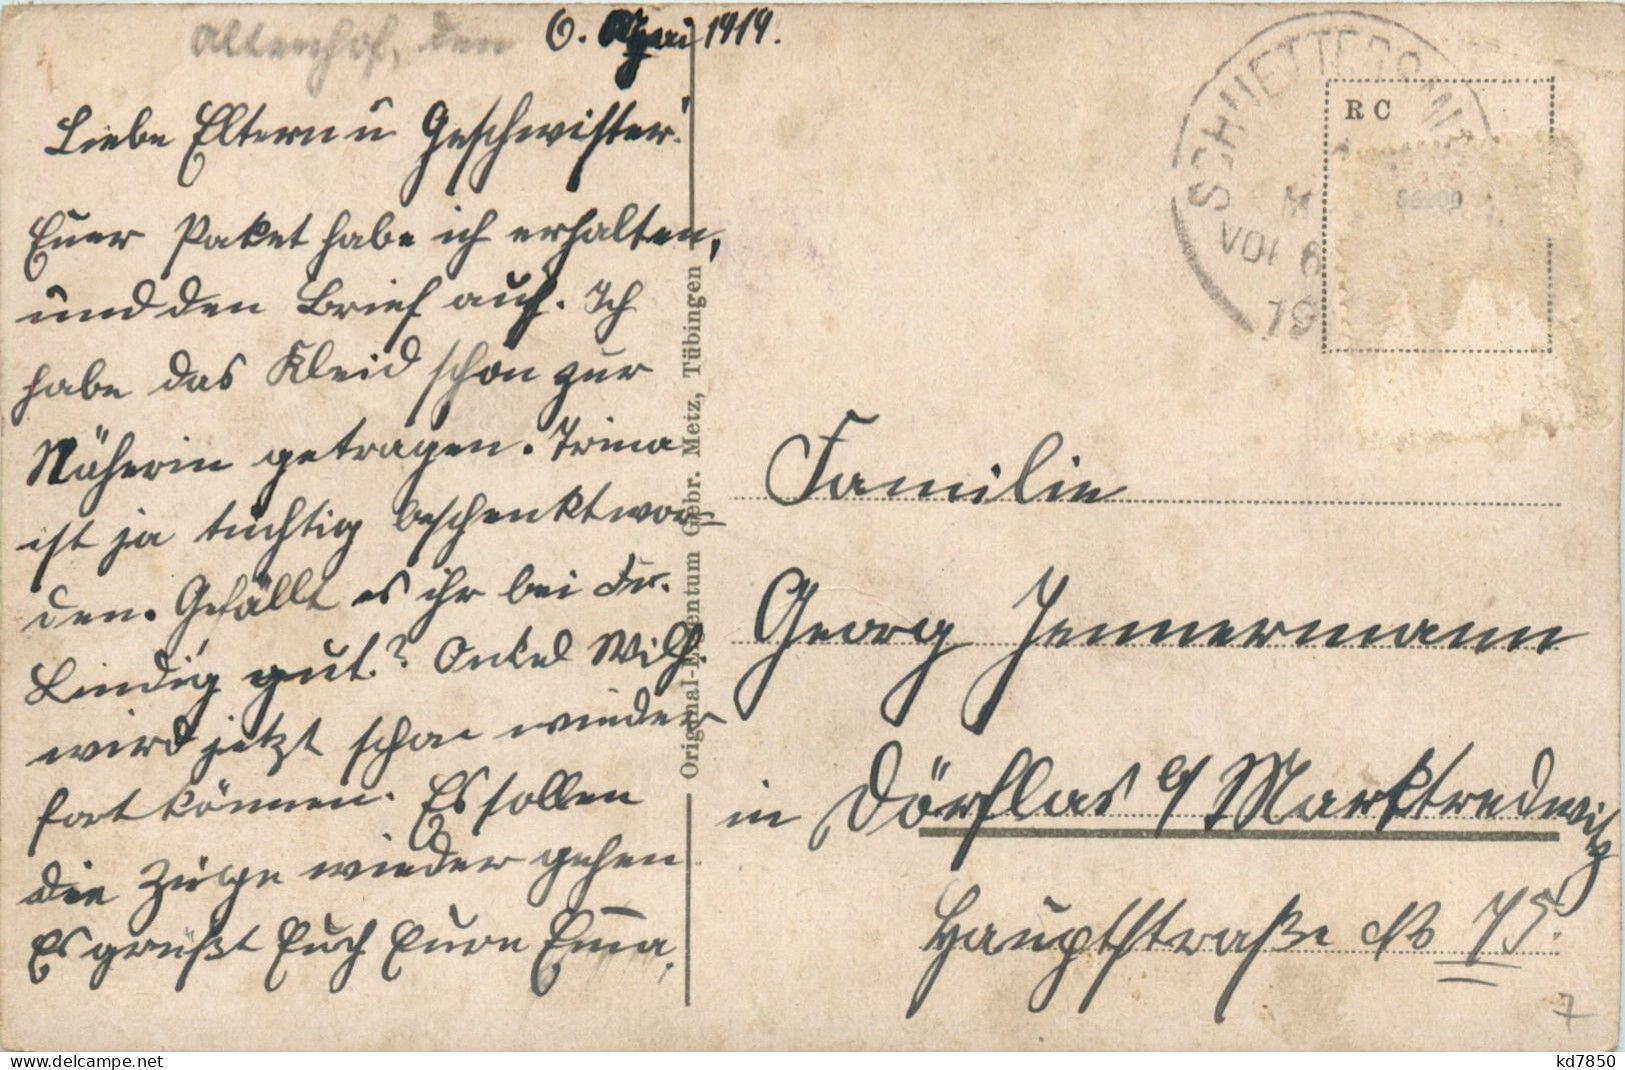 Altenhof, den 6. 1919.
Liebe Eltern u Geschwister!
Euer Paket habe ich erhalten,
und den Brief auch. Ich
habe das Kleid schon zur
Näherin getragen. Trina
ist ja tüchtig beschenkt wor=
den. Gefällt es ihr bei Fr.
Lindig gut? Onkel Wilh.
wird jetzt schon wieder
fort können. Es sollen
die Züge wieder gehen
Es grüßt Euch Eure Emma.
Original-Eigentum Gebr. Metz, Tübingen
R C
Familie
Georg Jennermann
in Dörflas b/ Marktredwitz
Hauptstraße No 75.
7
kd7850
www.delcampe.net